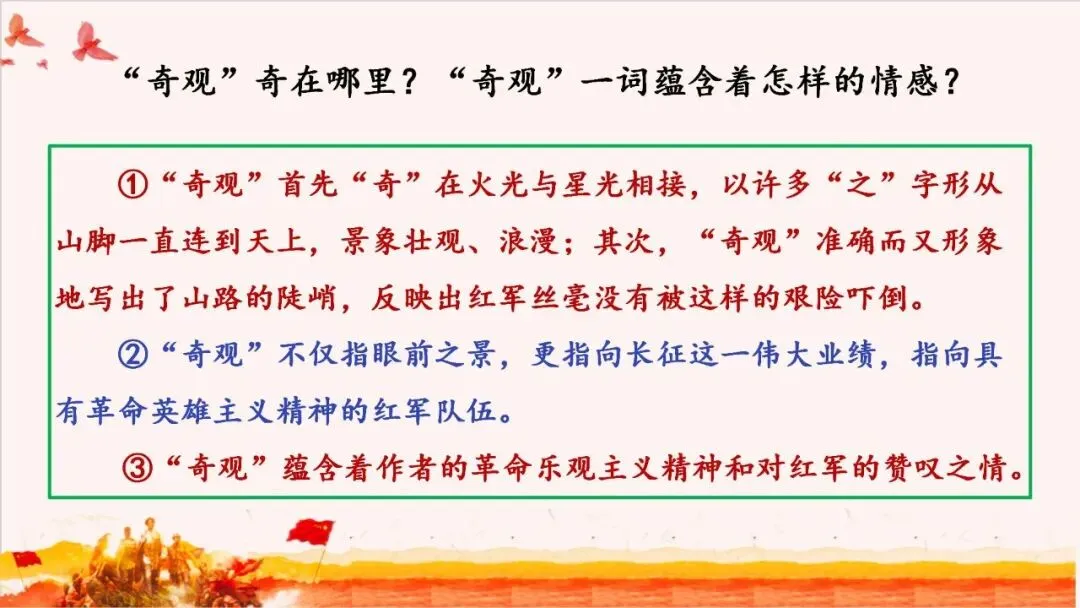 “奇观”奇在哪里？“奇观”一词蕴含着怎样的情感？
①“奇观”首先“奇”在火光与星光相接，以许多“之”字形从
山脚一直连到天上，景象壮观、浪漫；其次，“奇观”准确而又形象
地写出了山路的陡峭，反映出红军丝毫没有被这样的艰险吓倒。
②“奇观”不仅指眼前之景，更指向长征这一伟大业绩，指向具
有革命英雄主义精神的红军队伍。
③“奇观”蕴含着作者的革命乐观主义精神和对红军的赞叹之情。